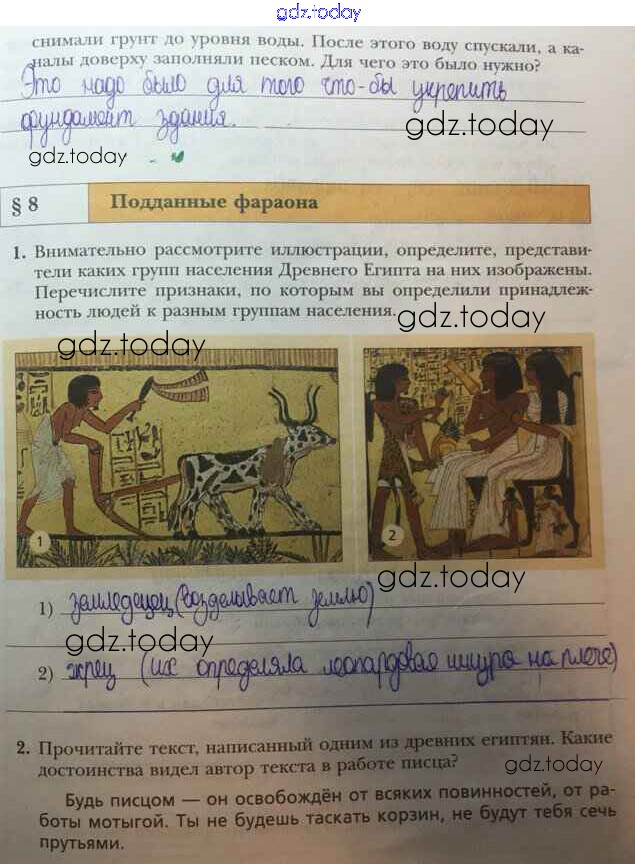 gdz.today
снимали грунт до уровня воды. После этого воду спускали, а ка-
налы доверху заполняли песком. Для чего это было нужно?
Это надо было для того что-бы укрепить
фундамент здания.
gdz.today
gdz.today
§ 8 Подданные фараона
1. Внимательно рассмотрите иллюстрации, определите, представи-
тели каких групп населения Древнего Египта на них изображены.
Перечислите признаки, по которым вы определили принадлеж-
ность людей к разным группам населения.
gdz.today
gdz.today
gdz.today
1
2
gdz.today
1) земледелец (возделывает землю)
gdz.today
2) жрец (их определяла леопардовая шкура на плече)
2. Прочитайте текст, написанный одним из древних египтян. Какие
достоинства видел автор текста в работе писца?
gdz.today
Будь писцом — он освобождён от всяких повинностей, от ра-
боты мотыгой. Ты не будешь таскать корзин, не будут тебя сечь
прутьями.